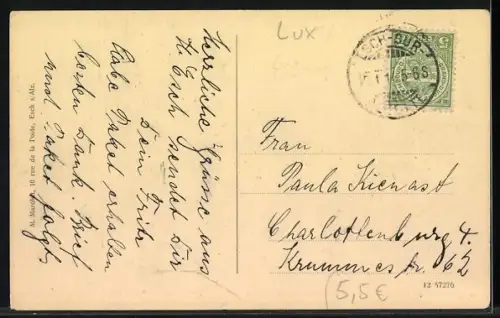 Herrliche Grüsse aus
Esch sendet Dir
Dein Fritz
Habe Paket erhalten
besten Dank. Brief
und Paket folgt.
Al. Marchen, 10 rue de la Poste, Esch s/Alz.
Lux
ESCH-SUR-
5-6S
5
Frau
Paula Kienast
Charlottenburg 4.
Krummestr. 62
12 57276
5,5€